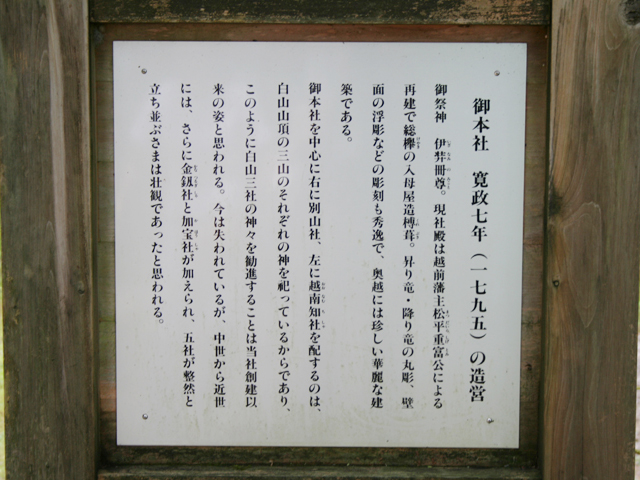 御本社 寛政七年(一七九五)の造営
御祭神 伊弉冊尊。現社殿は越前藩主松平重富公による
再建で総欅の入母屋造榑葺。昇り竜・降り竜の丸彫、壁
面の浮彫などの彫刻も秀逸で、奥越には珍しい華麗な建
築である。
御本社を中心に右に別山社、左に越南知社を配するのは、
白山山頂の三山のそれぞれの神を祀っているからであり、
このように白山三社の神々を勧進することは当社創建以
来の姿と思われる。今は失われているが、中世から近世
には、さらに金釼社と加宝社が加えられ、五社が整然と
立ち並ぶさまは壮観であったと思われる。